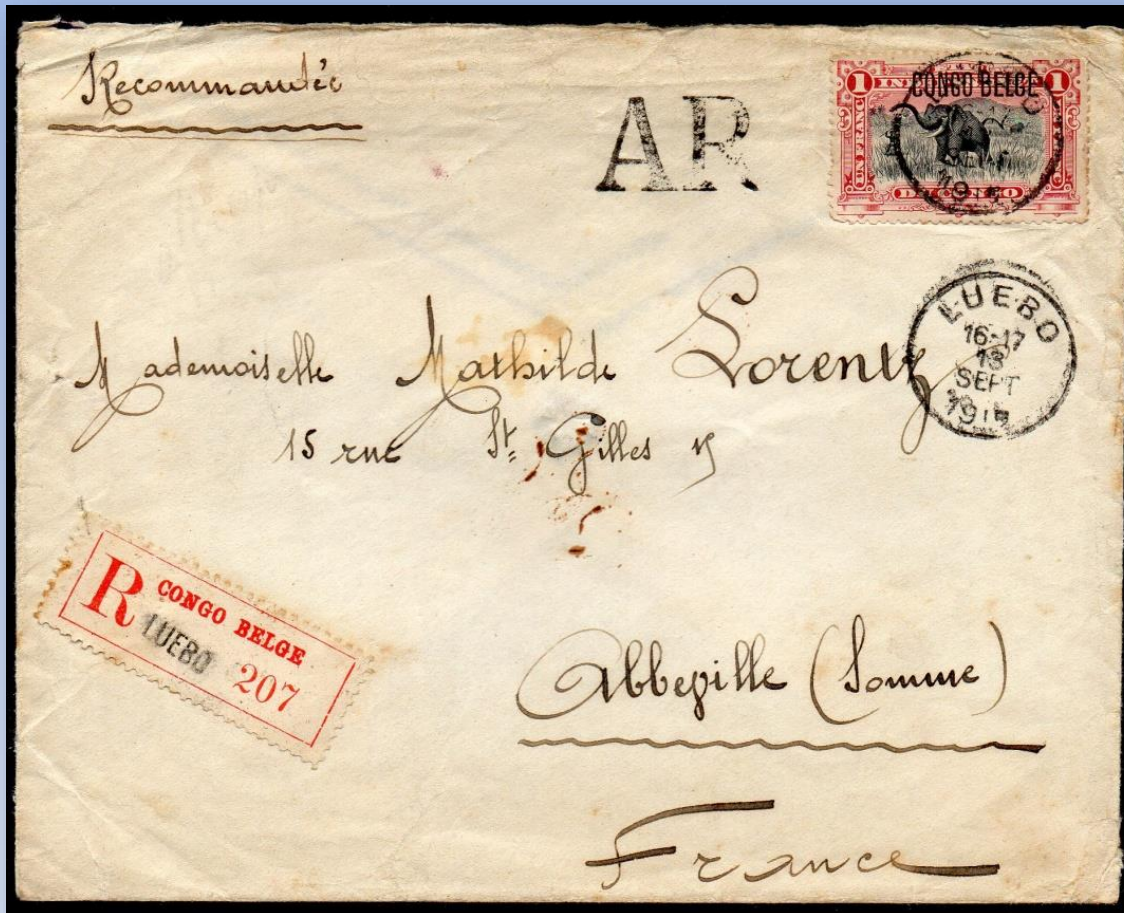 Recommandée
AR
1 CONGO BELGE 1
UN FRANC
DU CONGO
LUEBO
16-17
13
SEPT
Mademoiselle Mathilde Lorentz
15 rue St. Gilles 15
R CONGO BELGE
LUEBO 207
Abbeville (Somme)
France